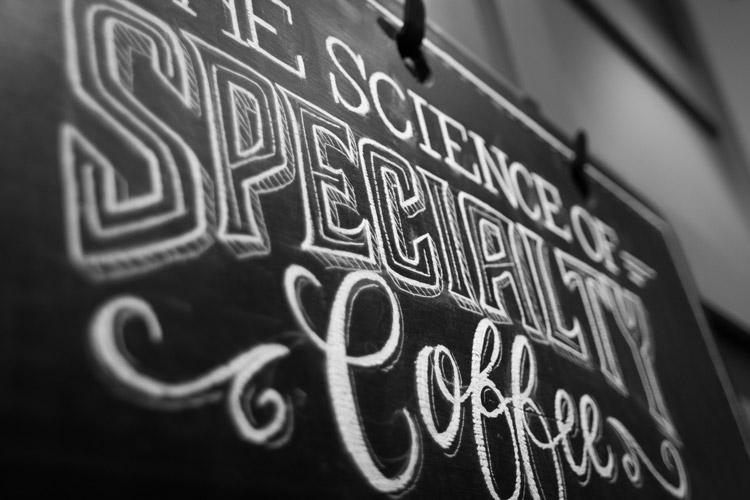 THE SCIENCE OF
SPECIALTY
Coffee